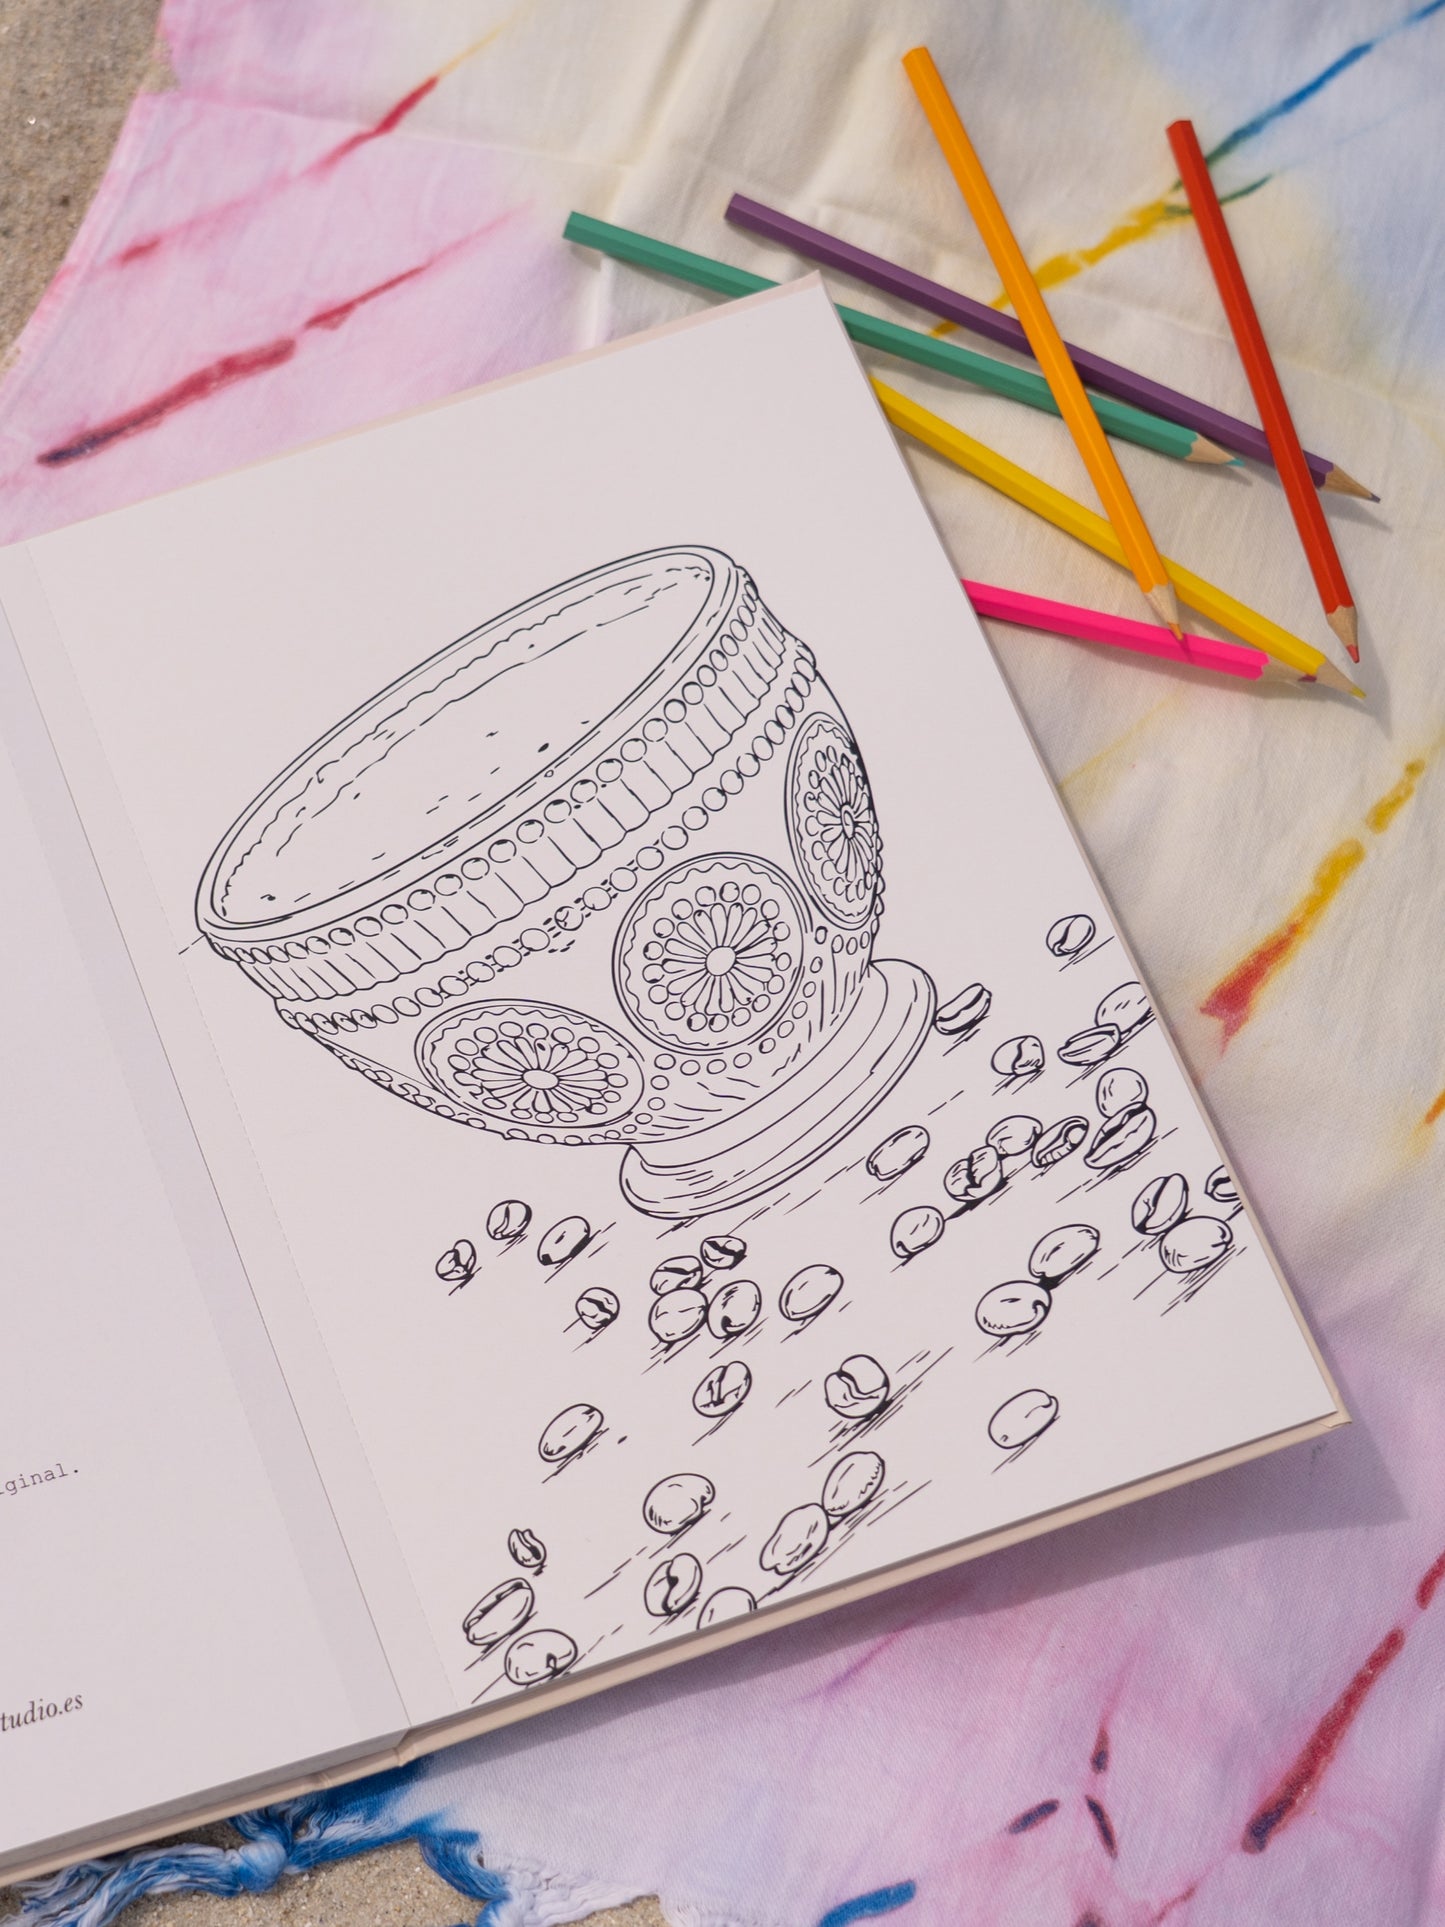 ginal.
tudio.es